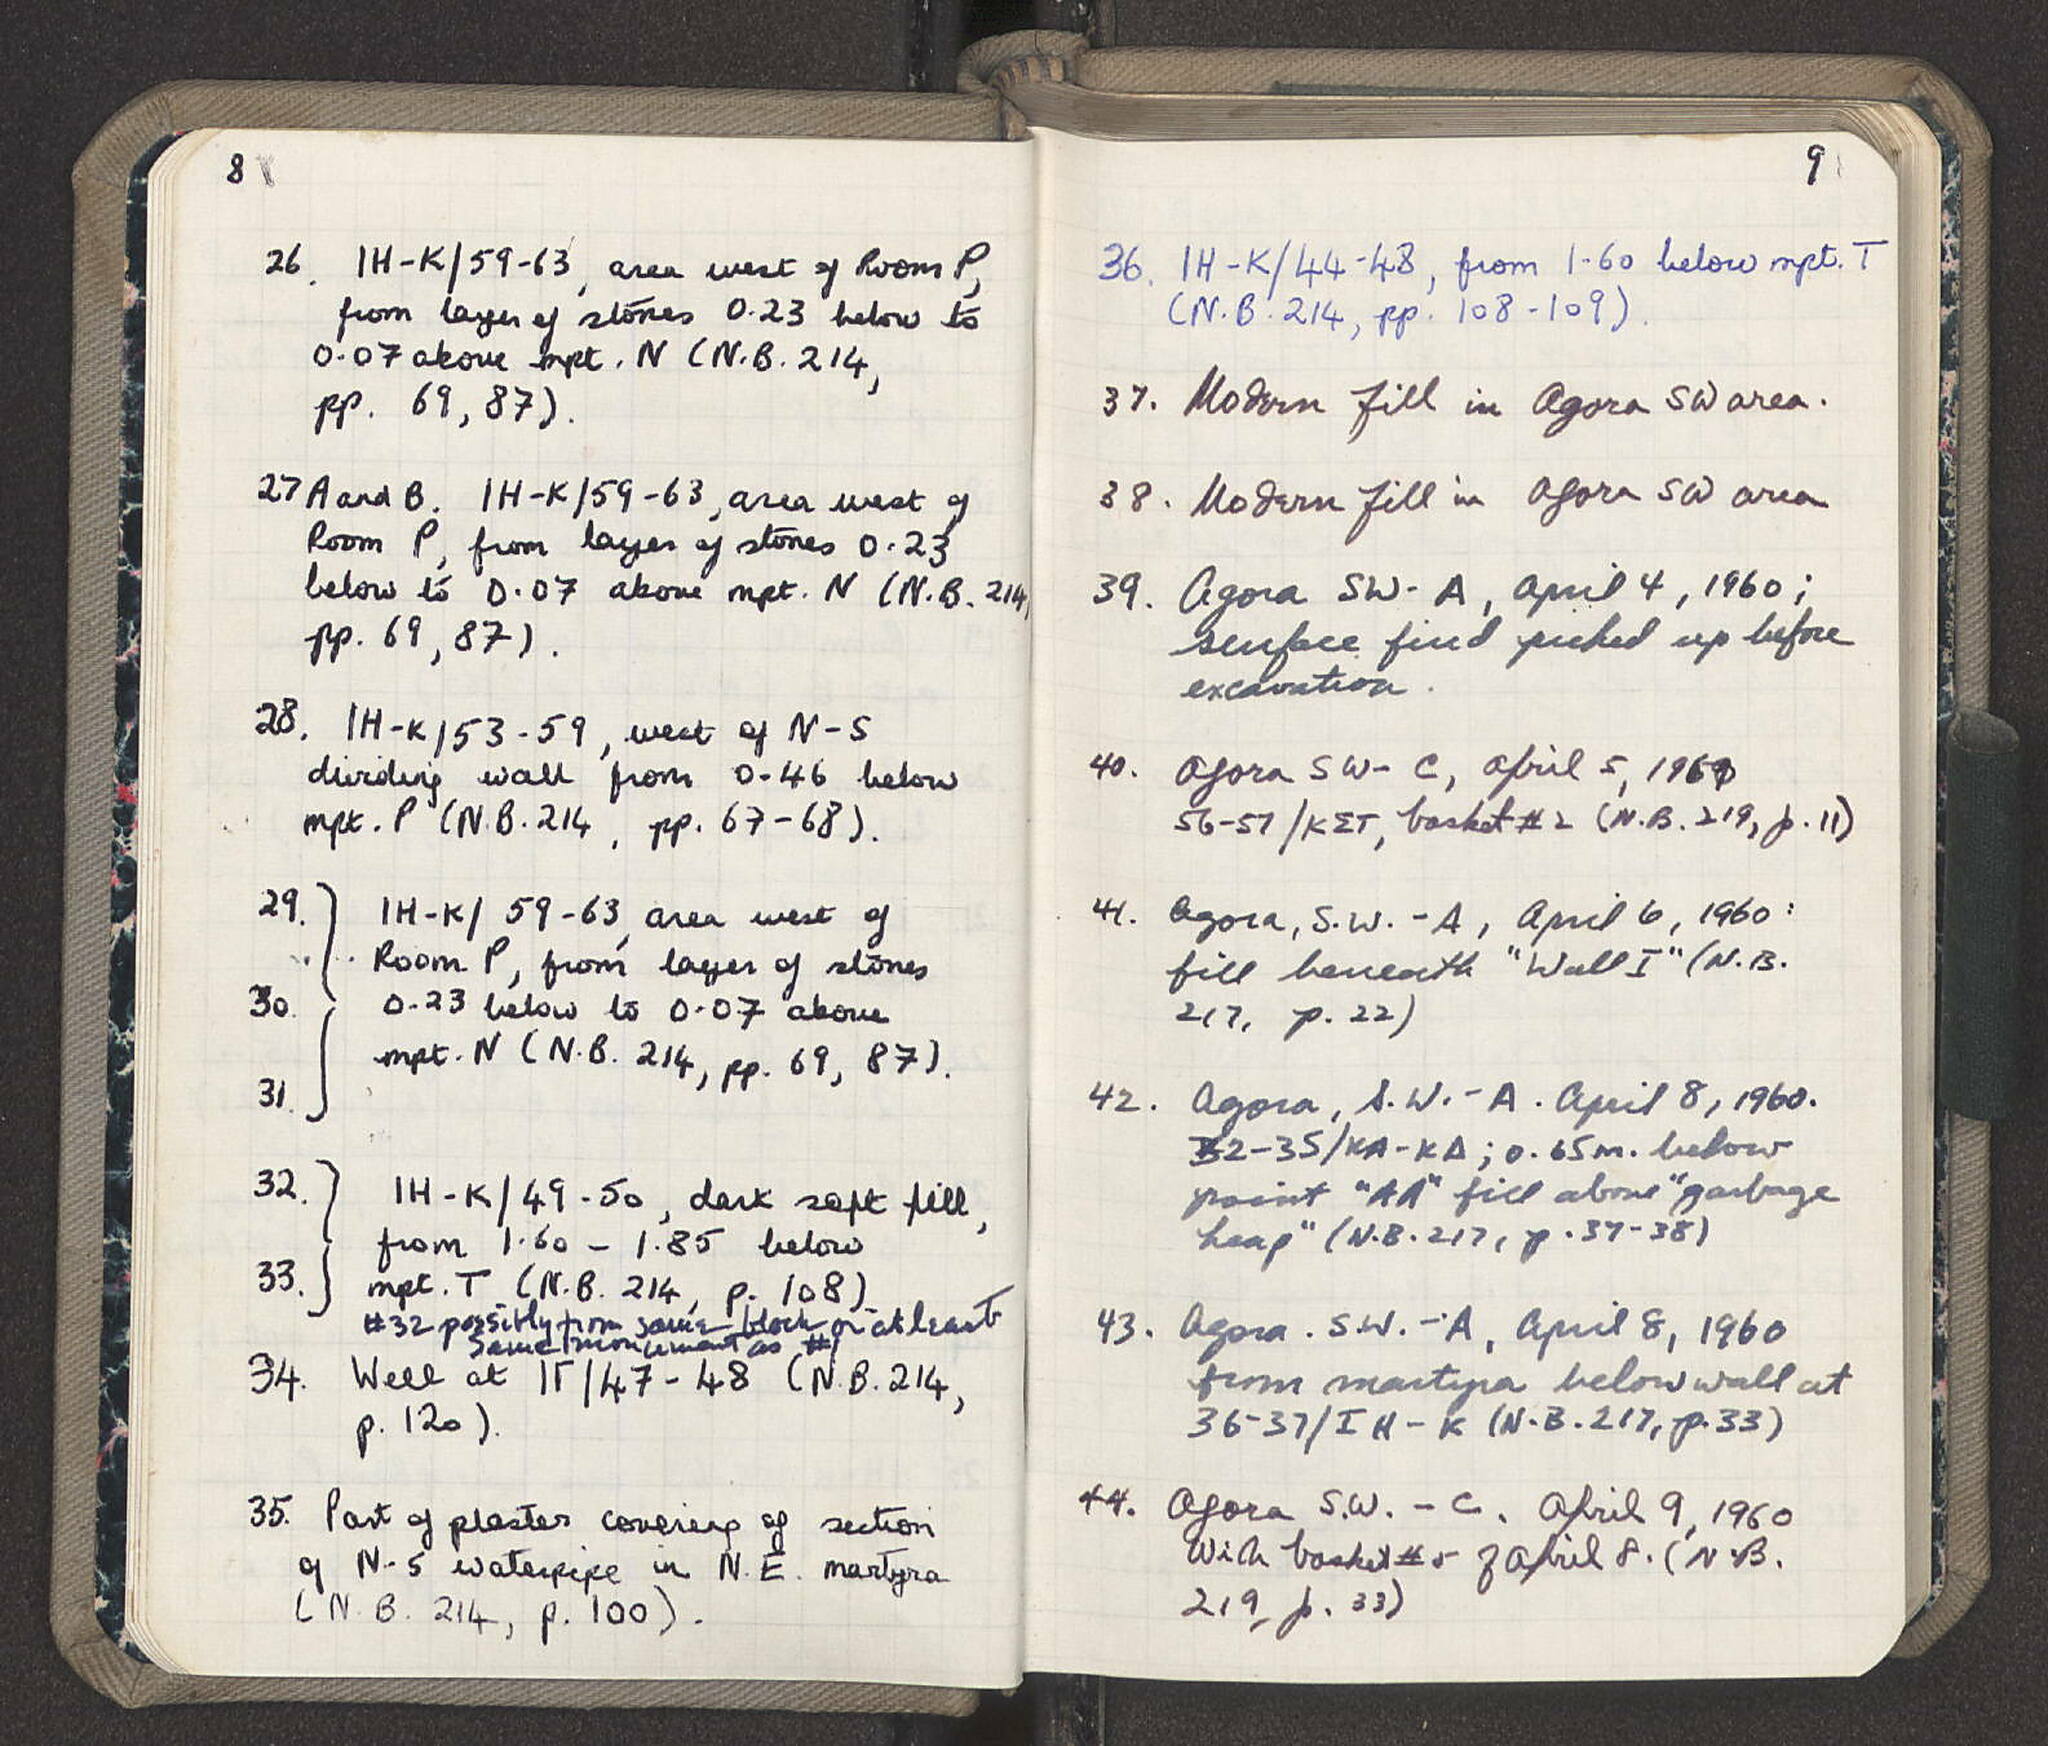 8
26. IH-K/59-63, area west of Room P,
from layer of stones 0.23 below to
0.07 above mpt. N (N.B. 214,
pp. 69, 87).
27 A and B. IH-K/59-63, area west of
Room P, from layer of stones 0.23
below to 0.07 above mpt. N (N.B. 214,
pp. 69, 87).
28. IH-K/53-59, west of N-S
dividing wall from 0.46 below
mpt. P (N.B. 214, pp. 67-68).
29. IH-K/59-63, area west of
Room P, from layer of stones
30. 0.23 below to 0.07 above
mpt. N (N.B. 214, pp. 69, 87).
31.
32. IH-K/49-50, dark soft fill,
from 1.60 - 1.85 below
33. mpt. T (N.B. 214, p. 108)
#32 possibly from same block or at least
same monument as #1
34. Well at IΓ/47-48 (N.B. 214,
p. 120).
35. Part of plaster covering of section
of N-S waterpipe in N.E. martyra
(N.B. 214, p. 100).
9
36. IH-K/44-48, from 1.60 below mpt. T
(N.B. 214, pp. 108-109).
37. Modern fill in Agora SW area.
38. Modern fill in Agora SW area
39. Agora SW-A, April 4, 1960;
surface find picked up before
excavation.
40. Agora SW-C, April 5, 1960
56-57/KΣT, basket #2 (N.B. 219, p. 11)
41. Agora, S.W.-A, April 6, 1960:
fill beneath "Wall I" (N.B.
217, p. 22)
42. Agora, S.W.-A. April 8, 1960.
32-35/KA-KΔ; 0.65m. below
point "AA" fill above "garbage
heap" (N.B. 217, p. 37-38)
43. Agora. S.W.-A, April 8, 1960
from martyra below wall at
36-37/IH-K (N.B. 217, p. 33)
44. Agora S.W.-C. April 9, 1960
With basket #5 of April 8. (N.B.
219, p. 33)